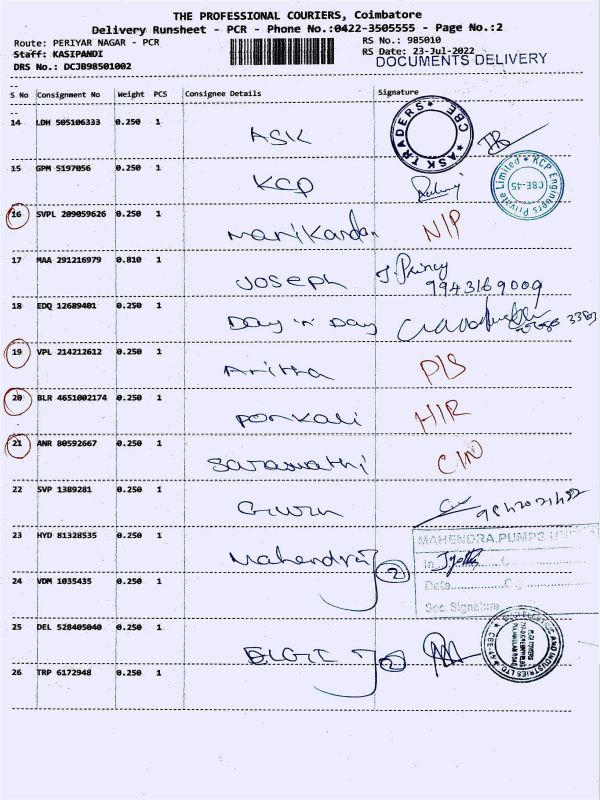 THE PROFESSIONAL COURIERS, Coimbatore
Delivery Runsheet - PCR - Phone No.:0422-3505555 - Page No.:2
Route: PERIYAR NAGAR - PCR RS No.: 985010
Staff: KASIPANDI RS Date: 23-Jul-2022
DRS No.: DCJB98501002 DOCUMENTS DELIVERY
S No Consignment No Weight PCS Consignee Details Signature
14 LDH 505106333 0.250 1 ASK
ASK TRADERS * CBE *
15 GPM 5197056 0.250 1 KCP
KCP Engineers Private Limited * CBE-45
16 SVPL 209059626 0.250 1 Manikandan N/P
17 MAA 291216979 0.810 1 Joseph J. Princy
9943169009
18 EDQ 12689401 0.250 1 Day 'n' Day
19 VPL 214212612 0.250 1
20 BLR 4651002174 0.250 1 Ponkali
21 ANR 80592667 0.250 1
22 SVP 1389281 0.250 1
23 HYD 81328535 0.250 1 Mahendra 2
MAHENDRA PUMPS
In
Date
Sec. Signature
24 VDM 1035435 0.250 1
25 DEL 528405040 0.250 1 ELGI 2
26 TRP 6172948 0.250 1